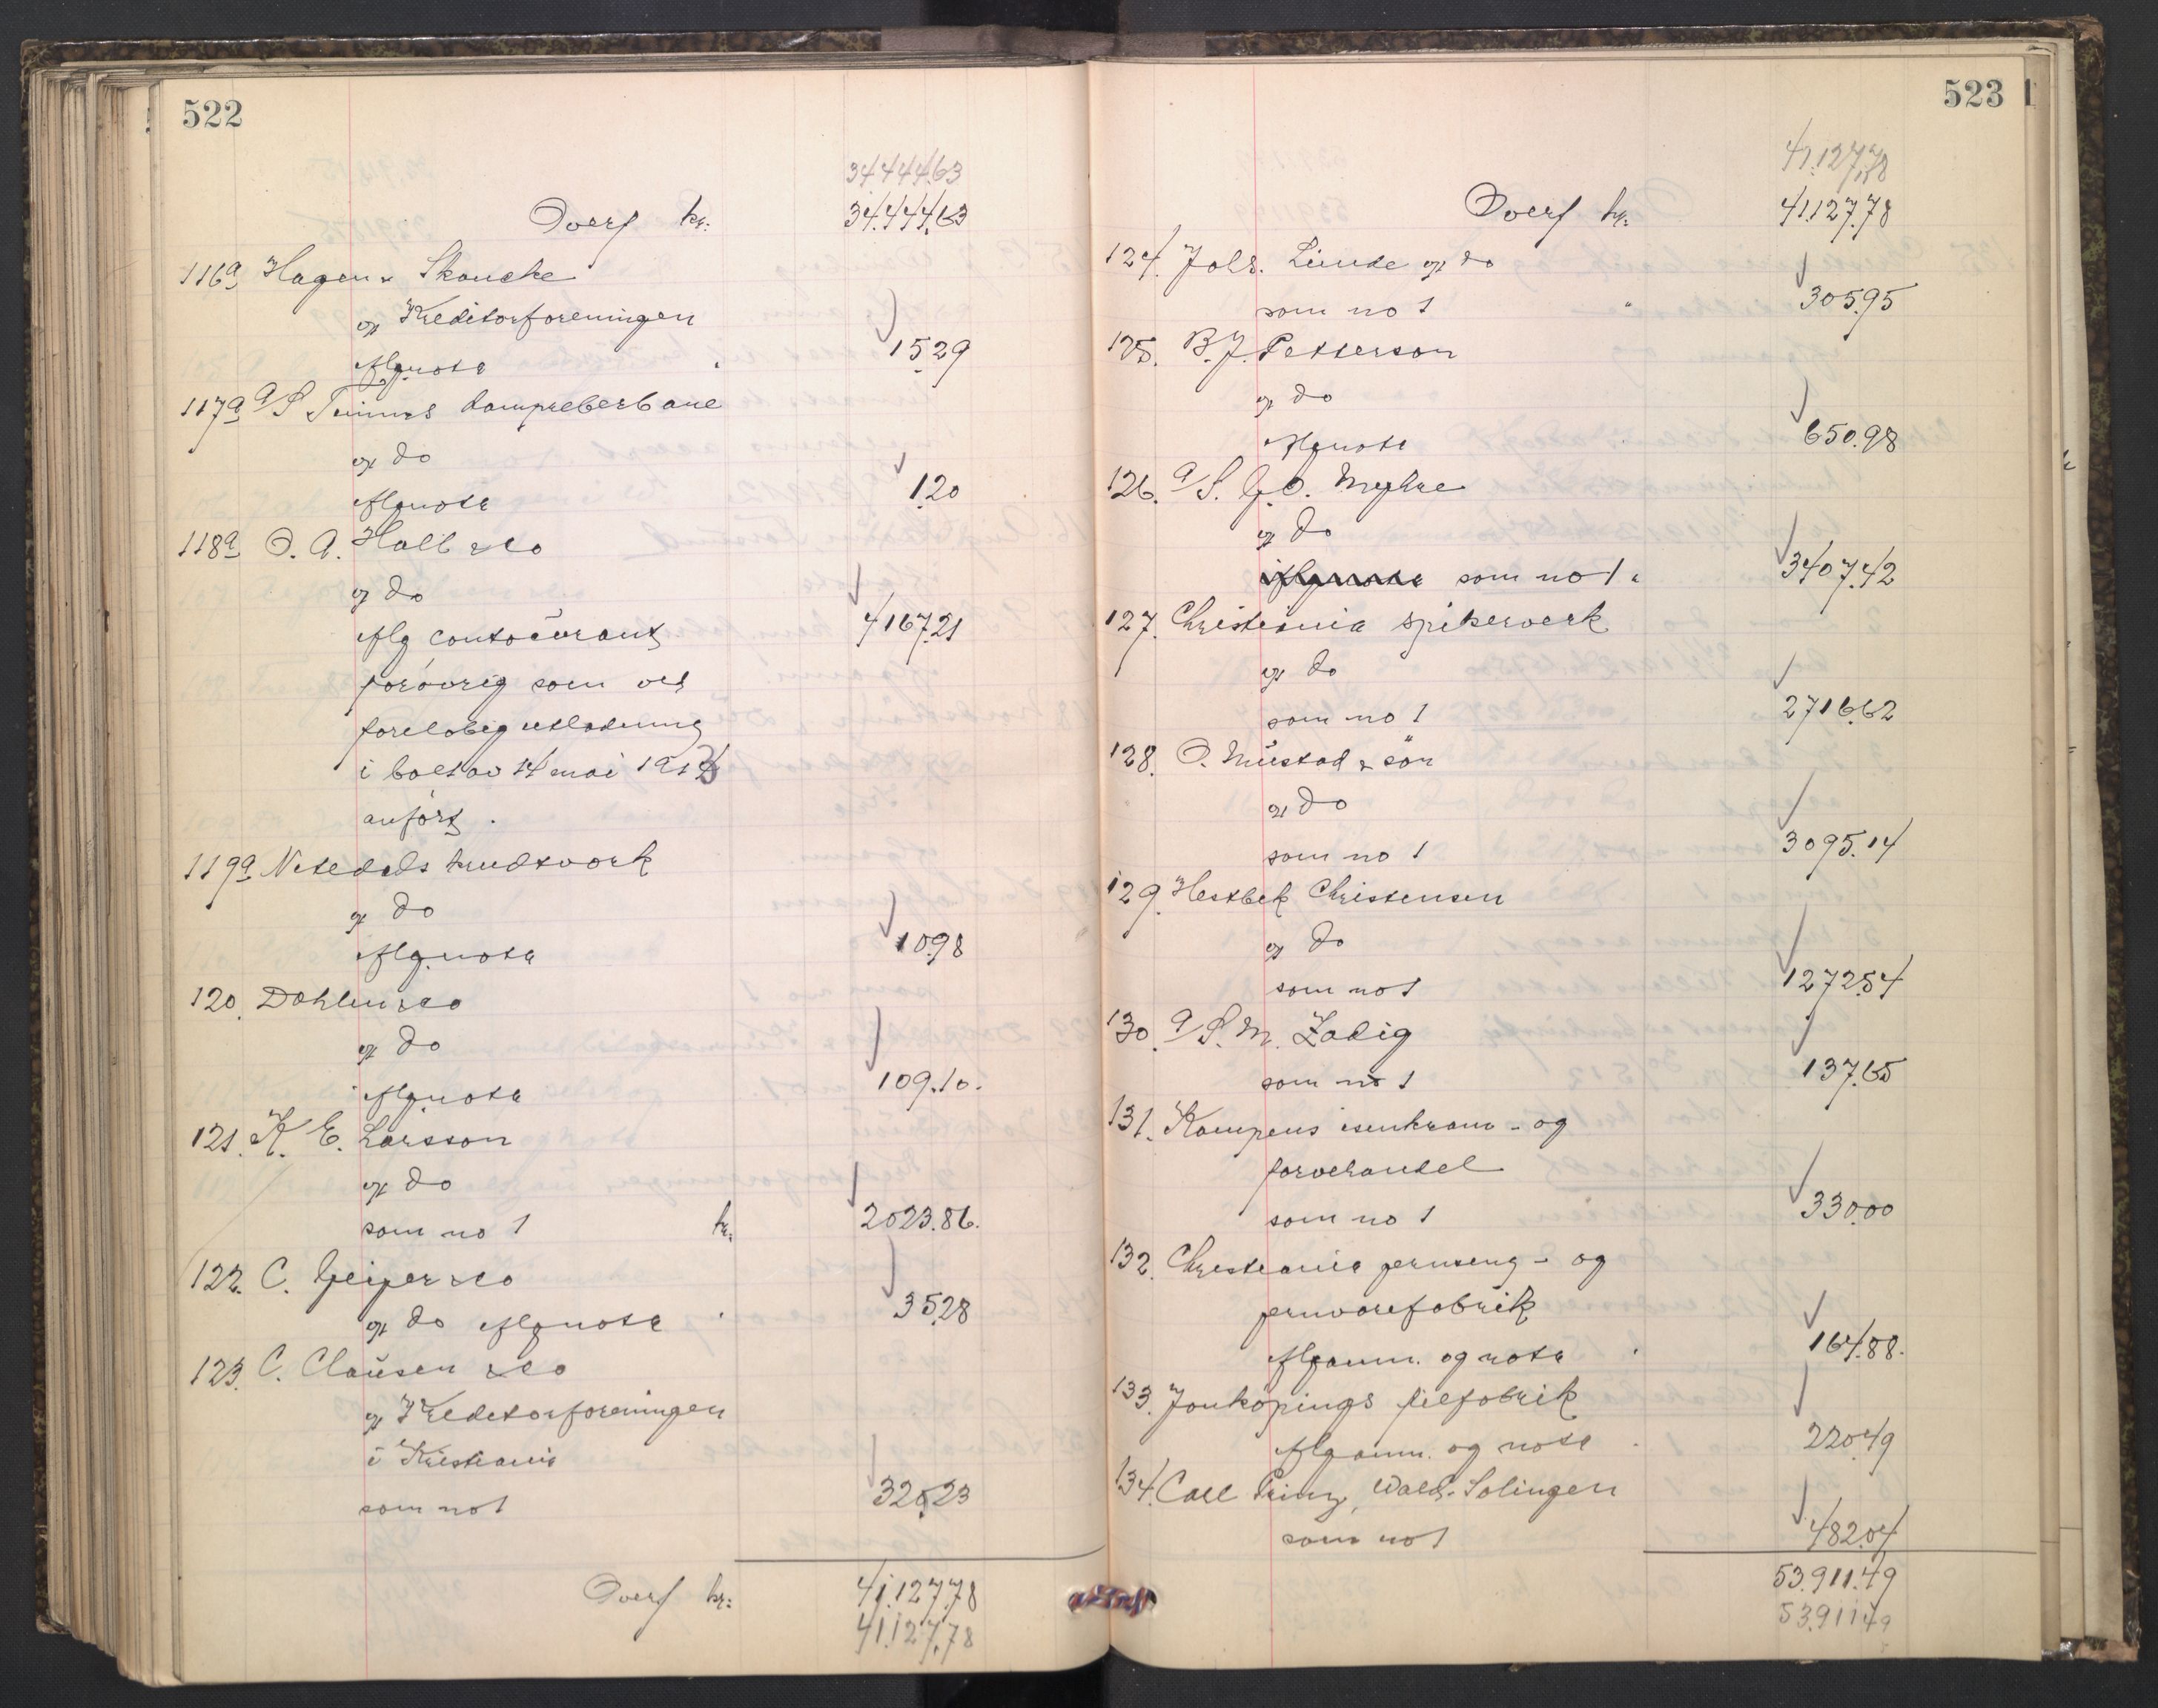 522
34.444.63
Overf kr: 34.444.63
116a Hagen & Skancke
og Kreditorforeningen
iflg nota " 15.29
117a A/S Tinnes
og do
iflg nota 1.20
118a O. A. Hall & Co
og do
iflg contocurant 4167.21
forövrig som ved
forelöbig utlodning
i boet av 14 mai 1913
anfört.
119a Nitedals krudtverk
og do
iflg nota 10.98
120. Dahlen & Co
og do
iflg nota 109.10.
121. K. E. Larsson
og do
som no 1 kr. 2023.86.
122. C. Geijer & Co
og do iflg nota " 35.28
123. C. Clausen & Co
og Kreditorforeningen
i Kristiania
som no 1 320.23
Overf kr: 41.127.78
41.127.78
523
41.127.78
Overf kr: 41.127.78
124. Johs. Lunde og do
som no 1 " 305.95
125. B. J. Petterson
og do
iflg nota 650.98
126. A/S. G. O. Myhre
og do
iflg nota som no 1 " 3407.42
127. Christiania spikerverk
og do
som no 1 2716.62
128. O. Mustad & sön
og do
som no 1 3095.14
129. Hestbek Christensen
og do
som no 1 1272.54
130. A/S. M. Zadig
som no 1 137.65
131. Kampens isenkram - og
farvehandel
som no 1 330.00
132. Christiania jernseng - og
jernvarefabrik
iflg anm. og nota " 164.88.
133. Jonköpings filfabrik
iflg anm. og nota " 220.49
134. Carl Prinz, Wald-Solingen
som no 1 482.04
53.911.49
53.911.49